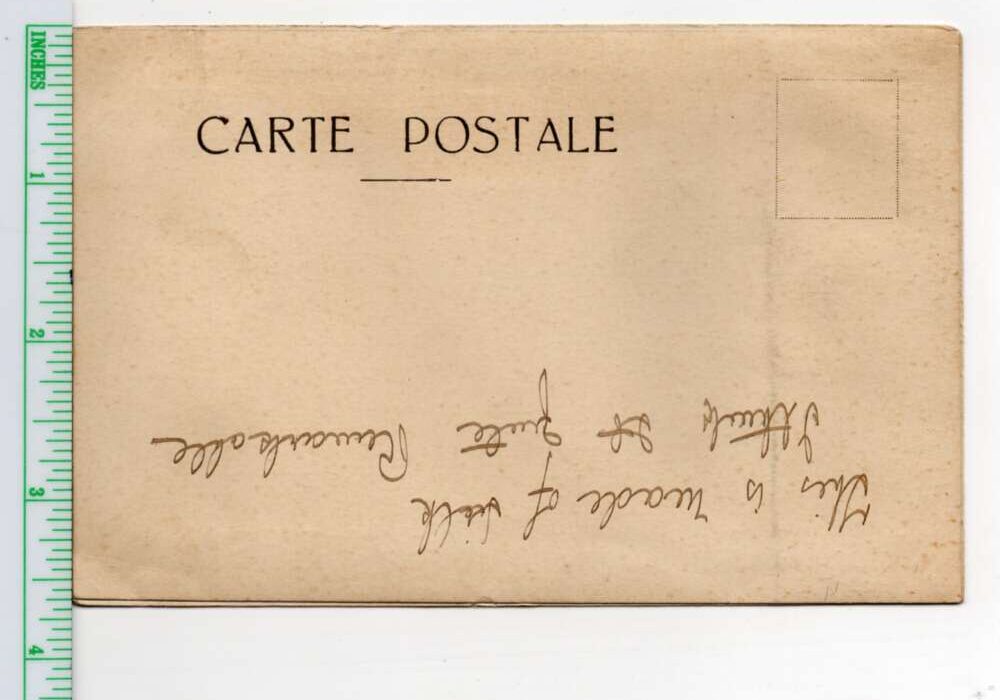 CARTE POSTALE
This is made of silk
I think it quite Remarkable
INCHES
1
2
3
4